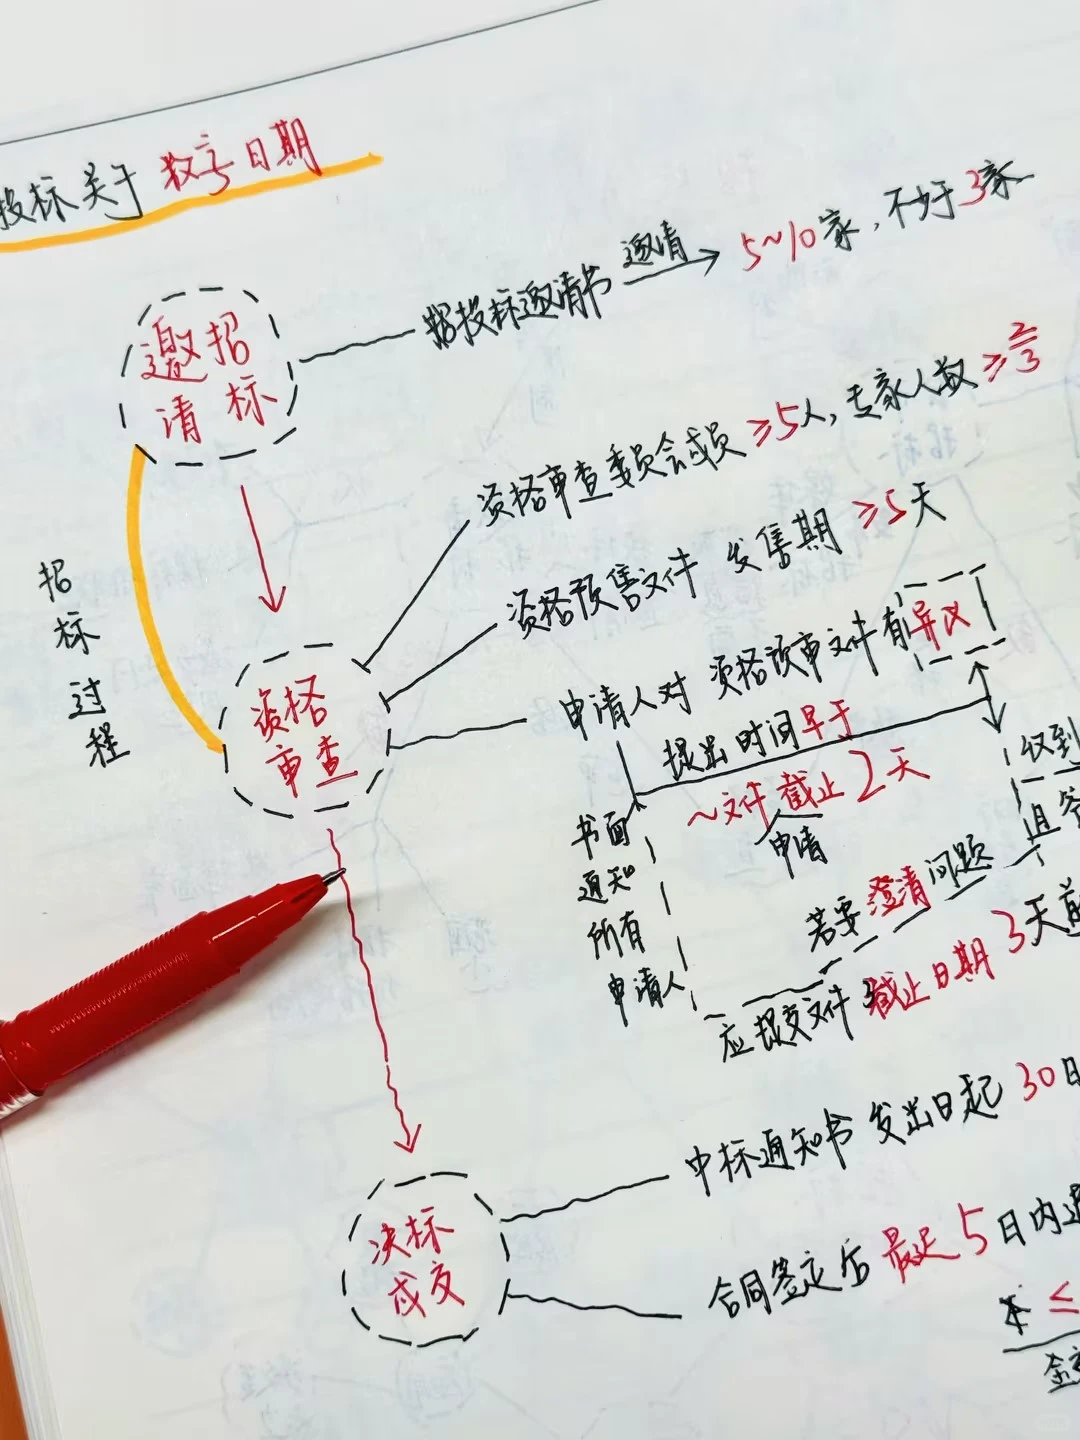 投标关于数字日期
邀请
招标
招投标邀请书 邀请 5~10家，不少于3家
资格审查委员会成员≥5人，专家人数≥2/3
资格预售文件 发售期 ≥5天
招标过程
资格
审查
申请人对 资格预审文件有异议
提出时间早于
~文件截止2天
申请
收到
且
书面
通知
所有
申请人
若要澄清问题
应提交文件 截止日期3天前
中标通知书 发出日起 30日
决标
成交
合同签定后 最迟5日内退
≤